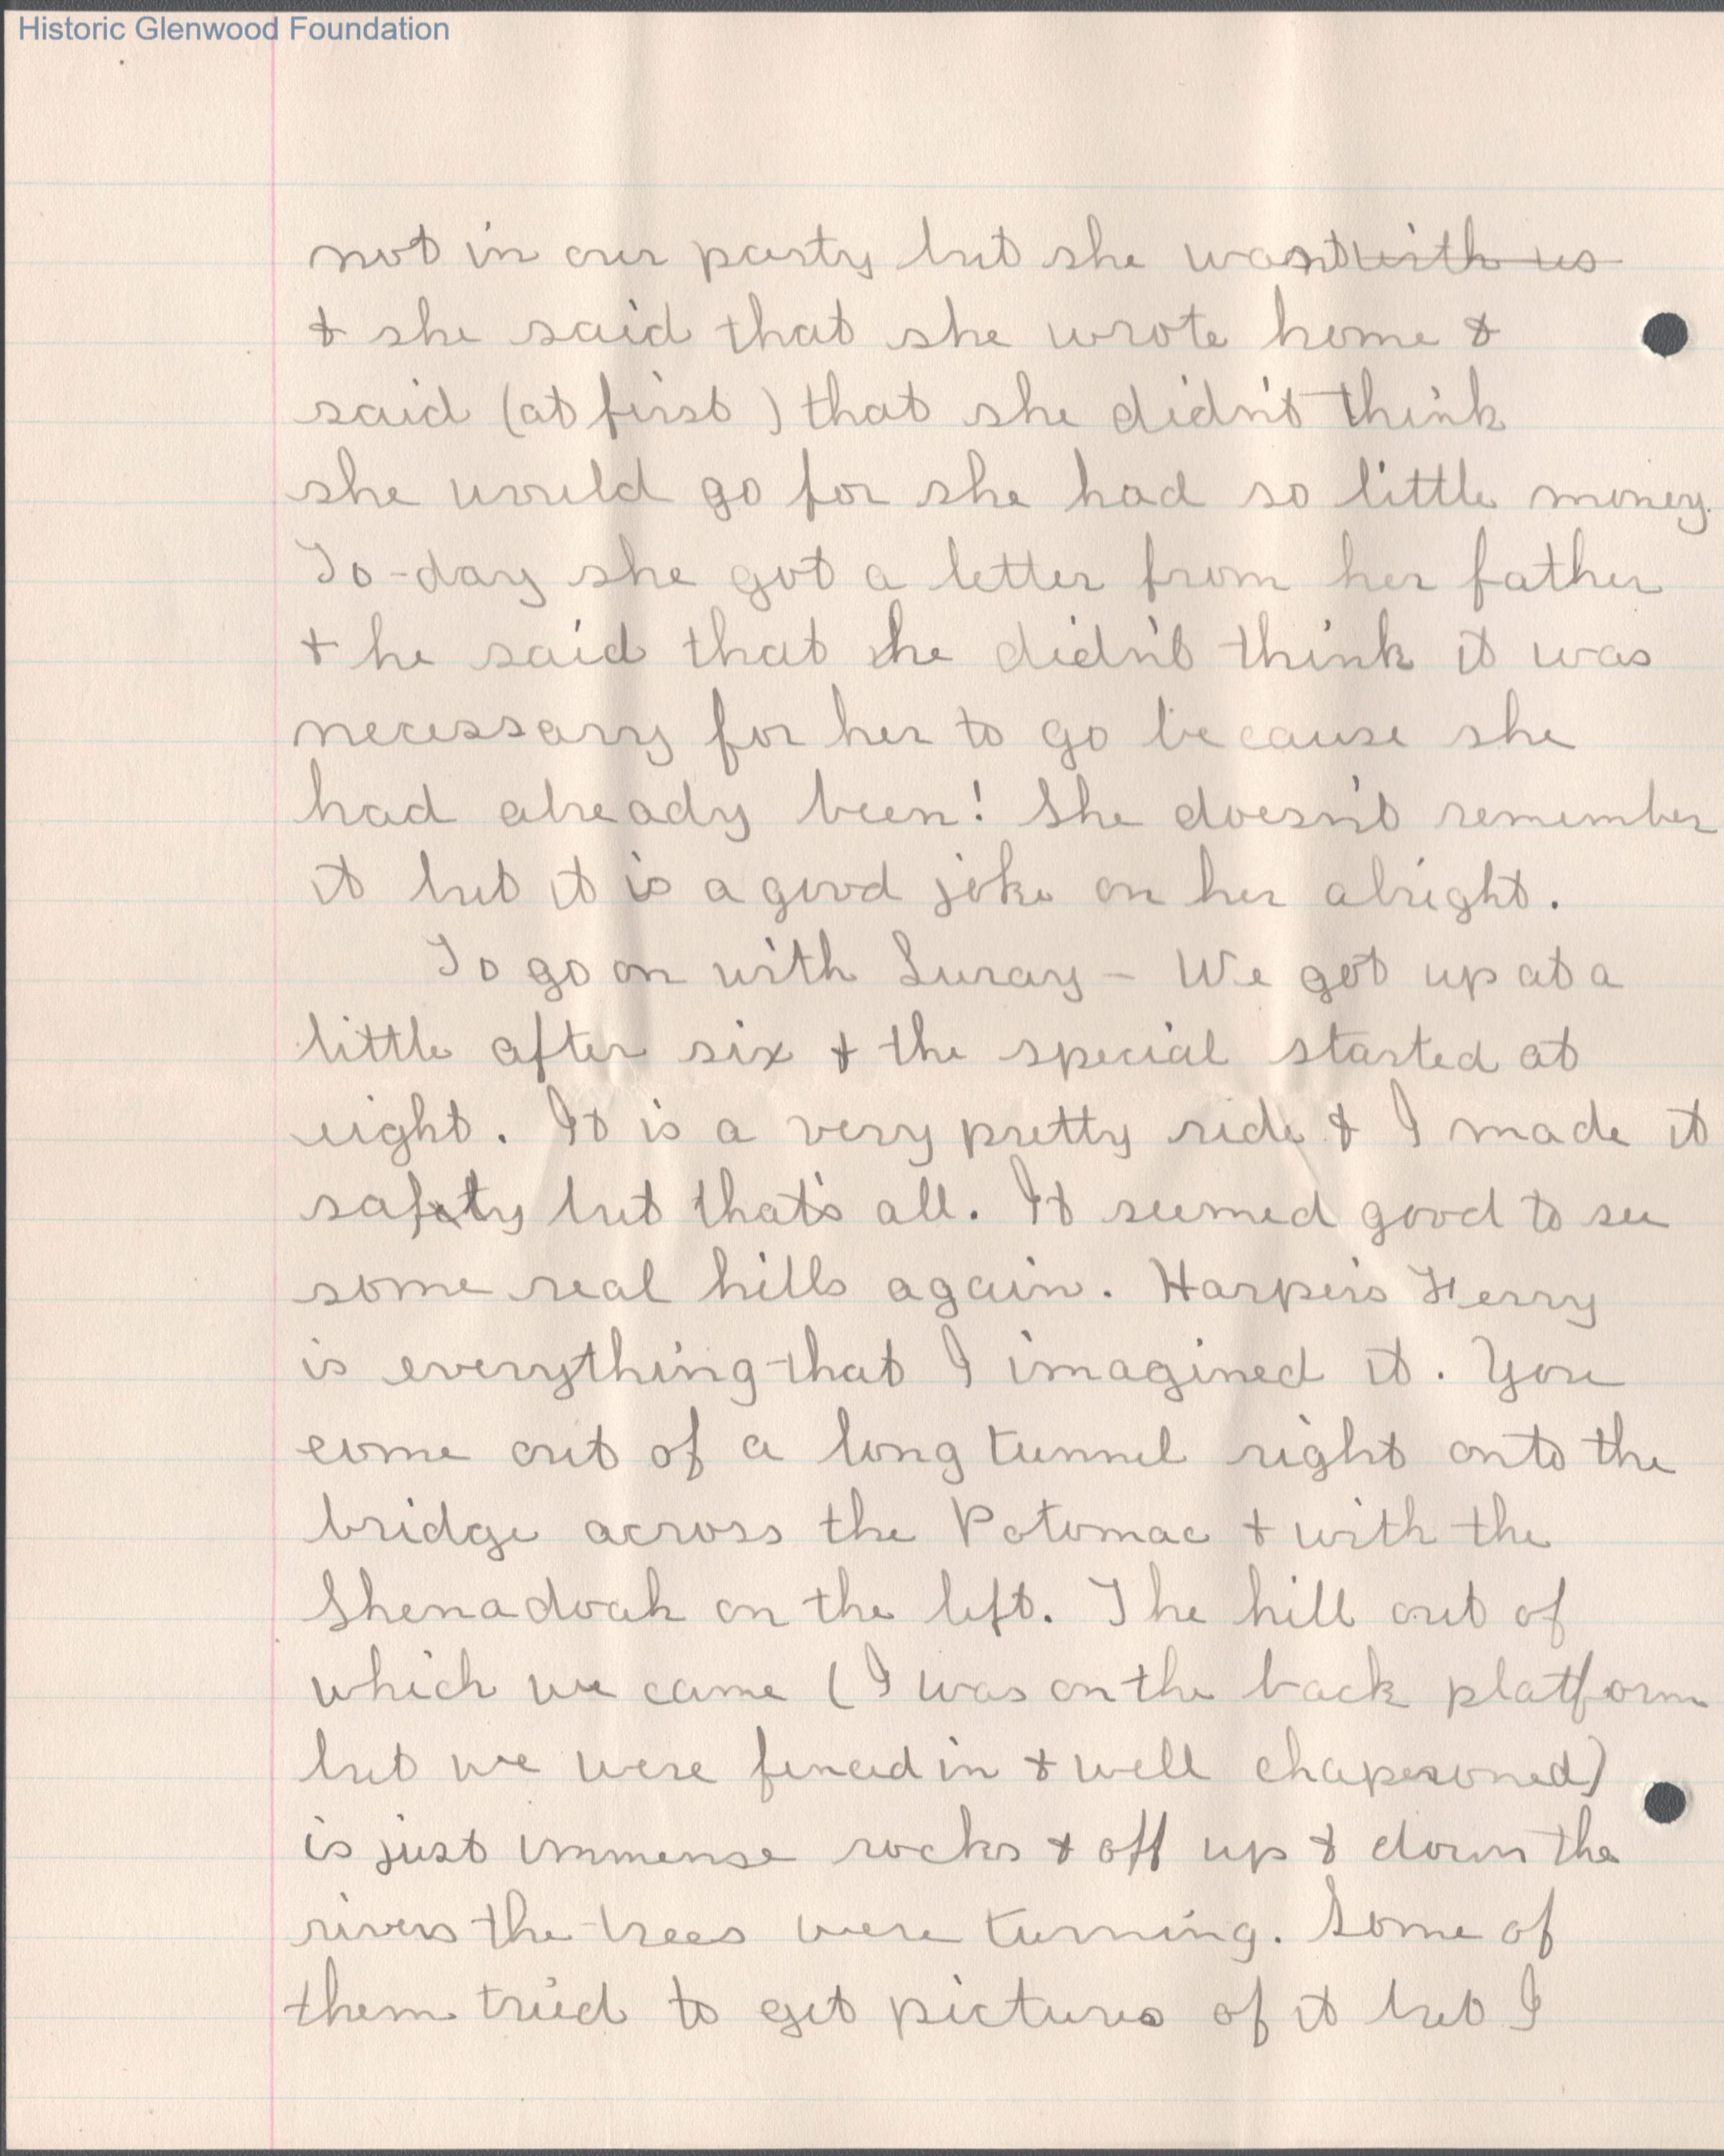 Historic Glenwood Foundation
not in our party but she want with us
& she said that she wrote home &
said (at first) that she didn't think
she would go for she had so little money.
To-day she got a letter from her father
& he said that he didn't think it was
necessary for her to go because she
had already been! She doesn't remember
it but it is a good joke on her alright.
To go on with Luray - We got up at a
little after six & the special started at
eight. It is a very pretty ride & I made it
safety but that's all. It seemed good to see
some real hills again. Harper's Ferry
is everything that I imagined it. You
come out of a long tunnel right onto the
bridge across the Potomac & with the
Shenadoah on the left. The hill out of
which we came (I was on the back platform
but we were fenced in & well chaperoned)
is just immense rocks & off up & down the
rivers the trees were turning. Some of
them tried to get pictures of it but I